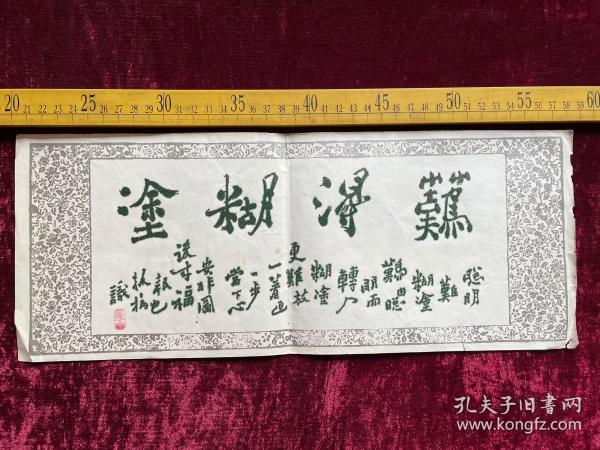 20 21 22 23 24 25 26 27 28 29 30 31 32 33 34 35 36 37 38 39 40 41 42 43 44 45 46 47 48 49 50 51 52 53 54 55 56 57 58 59 60
難得糊塗
聰明
難
糊塗
難由聰
明而
轉入
糊塗
更難放
一着退
一步
當下心
安非圖
後來福
報也
板橋
識
孔夫子旧书网
www.kongfz.com